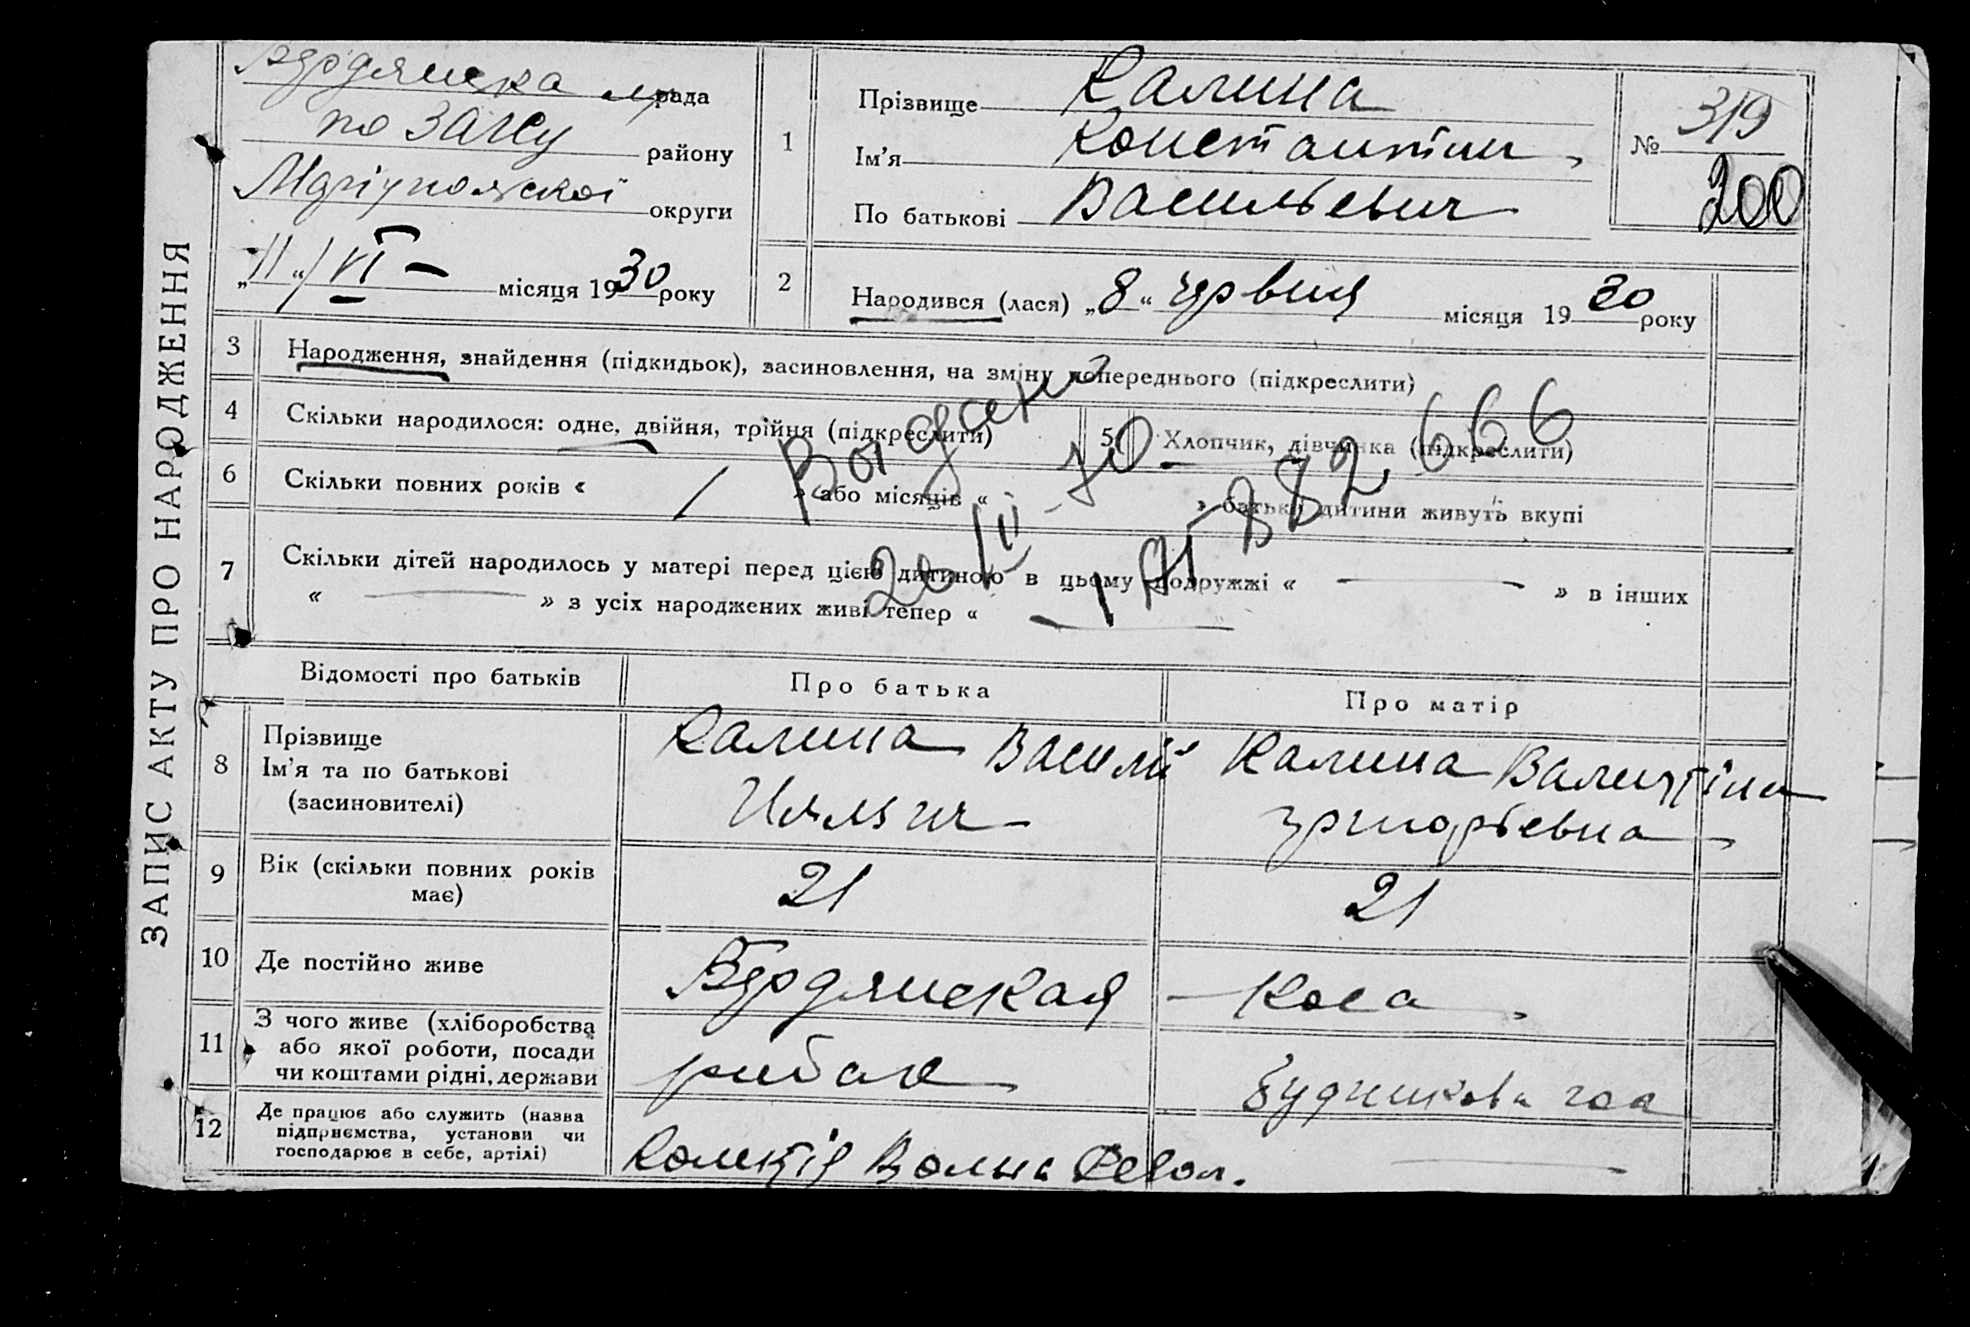 ЗАПИС АКТУ ПРО НАРОДЖЕННЯ
Бердянска рада
по ЗАГСу району
Маріупольскої округи
„11“ VI місяця 1930 року
1
Прізвище Калина
Ім’я Константин
По батькові Васильевич
№ 319
200
2
Народився (лася) „8“ червня місяця 1930 року
3 Народження, знайдення (підкидьок), засиновлення, на зміну попереднього (підкреслити)
4 Скільки народилося: одне, двійня, трійня (підкреслити)
5 Хлопчик, дівчинка (підкреслити)
6 Скільки повних років « 1 » або місяців « » батьки дитини живуть вкупі
Выдано
20/III-70
1 АГ 882666
7 Скільки дітей народилось у матері перед цією дитиною в цьому подружжі « — » в інших
« — » з усіх народжених живі тепер « —
Відомості про батьків
Про батька
Про матір
8 Прізвище
Ім’я та по батькові
(засиновителі)
Калина Василій
Ильич
Калина Валентіна
Григорьевна
9 Вік (скільки повних років
має)
21
21
10 Де постійно живе
Бердянская - Коса
11 З чого живе (хліборобства
або якої роботи, посади
чи коштами рідні, держави
рибак
12 Де працює або служить (назва
підприємства, установи чи
господарює в себе, артілі)